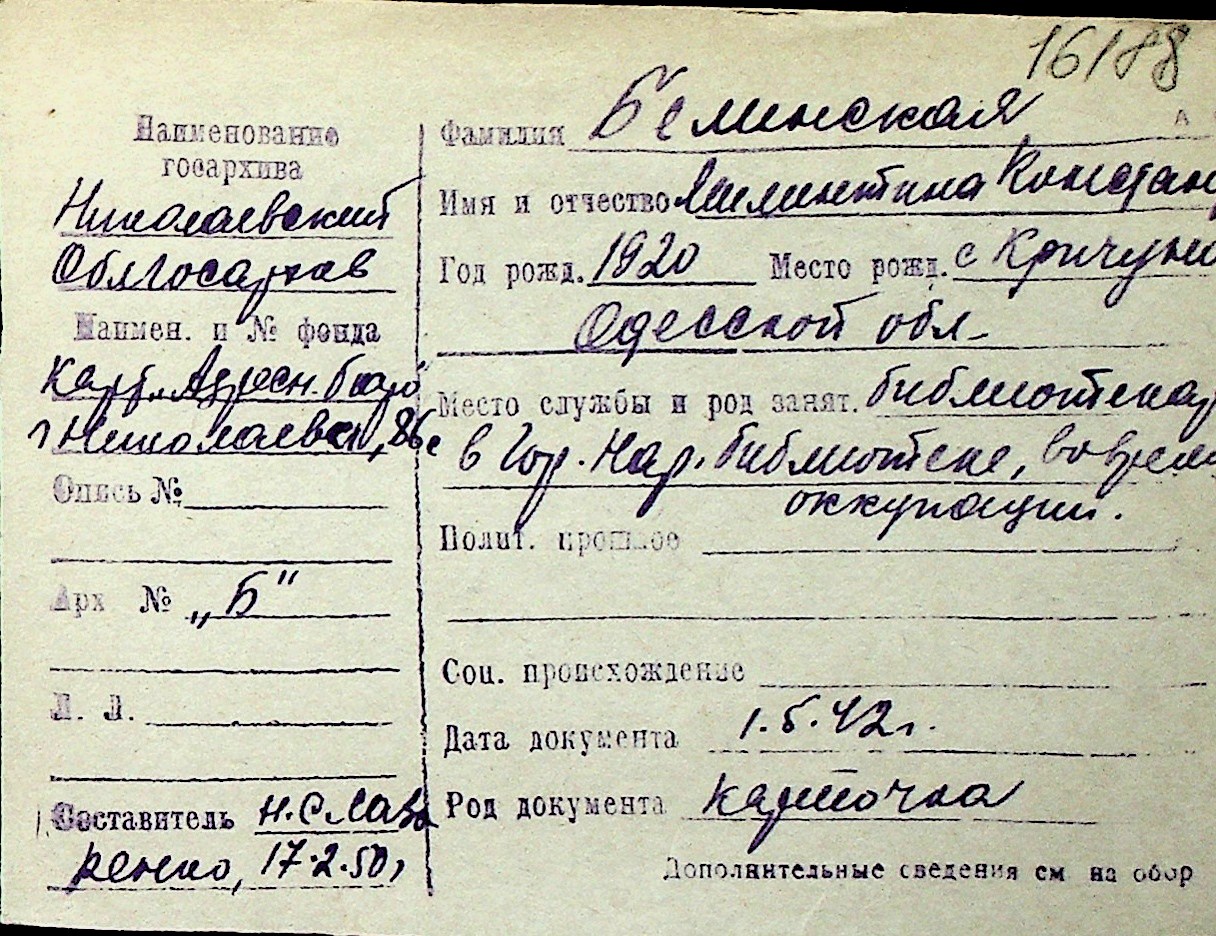 16/88
Наименование
госархива
Николаевский
Облгосархив
Наимен. и № фонда
Карт. Адресн. бюро
г Николаева,
Опись №
Арх № „Б"
Л. Л.
Составитель Н. Слава
ренко, 17.2.50г
Фамилия Беминская
Имя и отчество Констан
Год рожд. 1920 Место рожд. с Кричуно
Одесской обл-
Место службы и род занят. библиотекар
в Гор. Нар. библиотеке, во время
оккупации.
Полит. прошлое
Соц. происхождение
Дата документа 1.5.42г.
Род документа карточка
Дополнительные сведения см на обор